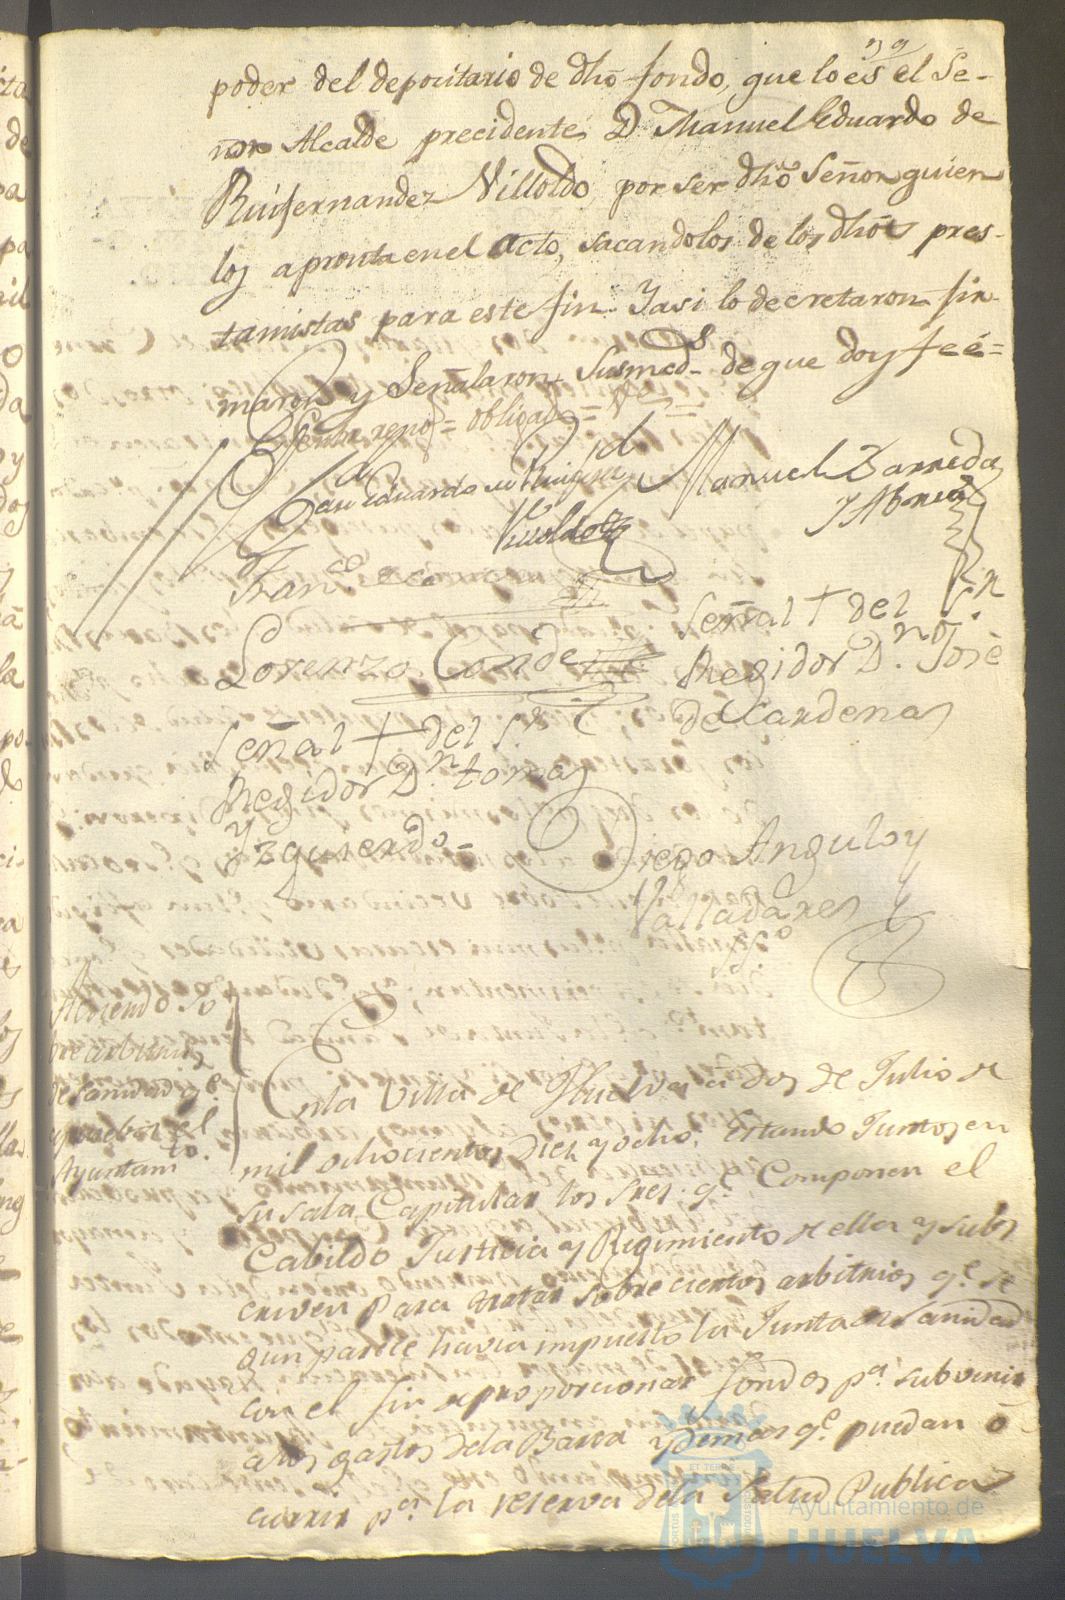 39
poder del depocitario de dho fondo, que lo es el Se-
ñor Alcalde precidente, D. Manuel Eduardo de
Ruifernandez Villoldo, por ser dho Señor quien
los apronta en el acto, sacandolos de los dhos pres-
tamistas para este fin. Y asi lo decretaron fir-
maron y Señalaron Susmeds. de que doy feé=
Entre reng.s = obligados =
Manuel Barreda
Y Abreu
Eduardo de Ruifz
Villoldo
Franco
Lorenzo Conde
Señal + del Sr.
Regidor Dn. José
de Cardenas
Señal + del Sr.
Regidor Dn. tomas
Yzquierdo =
Diego Angulo y
Valladares
SSo.
Acuerdo so
bre arbitrios
de Sanidad q.e
aprueba el
Ayuntamto.
En la Villa de Huelva a dos de Julio de
mil ochocientos diez y ocho, Estando Juntos en
su sala Capitular los Sres. q.e Componen el
Cabildo Justicia y Regimiento de ella y subs
criven para tratar sobre ciertos arbitrios q.e se
gun parece havia impuesto la Junta de Sanidad
con el fin de proporcionar fondos pa. subvenir
a los gastos de la Barca y demas q.e puedan o
currir pa. la reserva de la Salud Publica
Ayuntamiento de
HUELVA